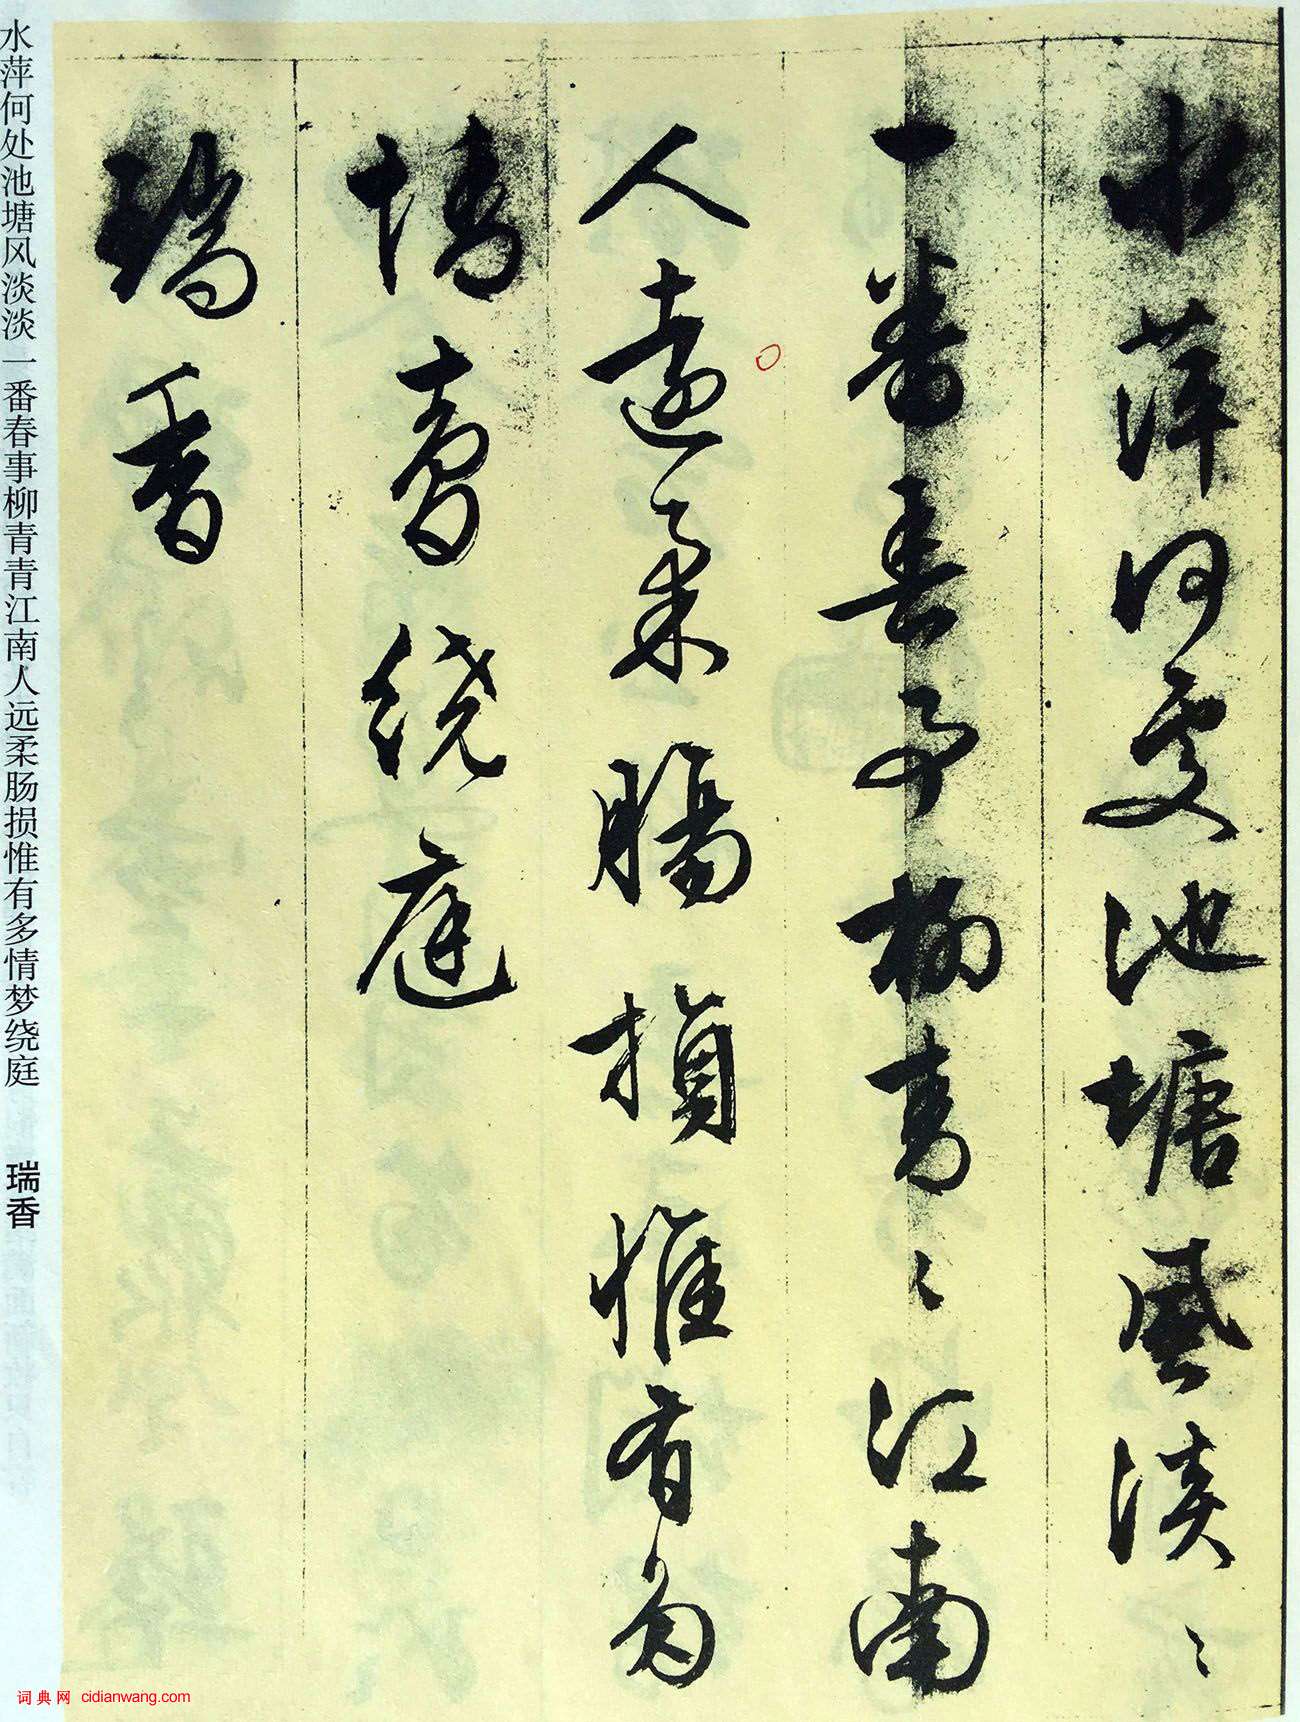 水萍何處池塘風淡〻
一番春事柳青〻江南
人遠柔腸損惟有多
情夢繞庭
瑞香
水萍何处池塘风淡淡一番春事柳青青江南人远柔肠损惟有多情梦绕庭
瑞香
词典网 cidianwang.com